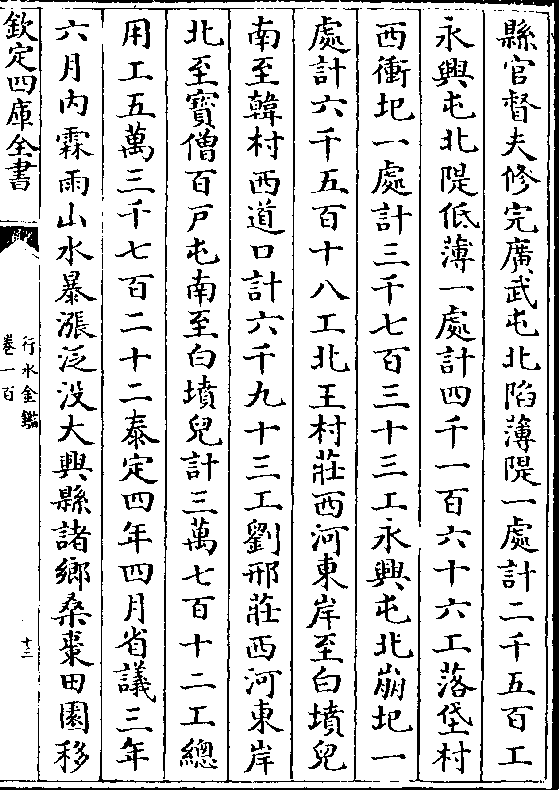 縣官督夫修完廣武屯北陷薄隄一處計二千五百工
永興屯北隄低薄一處計四千一百六十六工落垡村
西衝圯一處計三千七百三十三工永興屯北崩圯一
處計六千五百十八工北王村莊西河東岸至白墳兒
南至韓村西道口計六千九十三工劉邢莊西河東岸
北至寶僧百戸屯南至白墳兒計三萬七百十二工總
用工五萬三千七百二十二泰定四年四月省議三年
六月内霖雨山水暴漲泛没大興縣諸鄉桑棗田園移
欽定四庫全書
行水金鑑
卷一百
十三